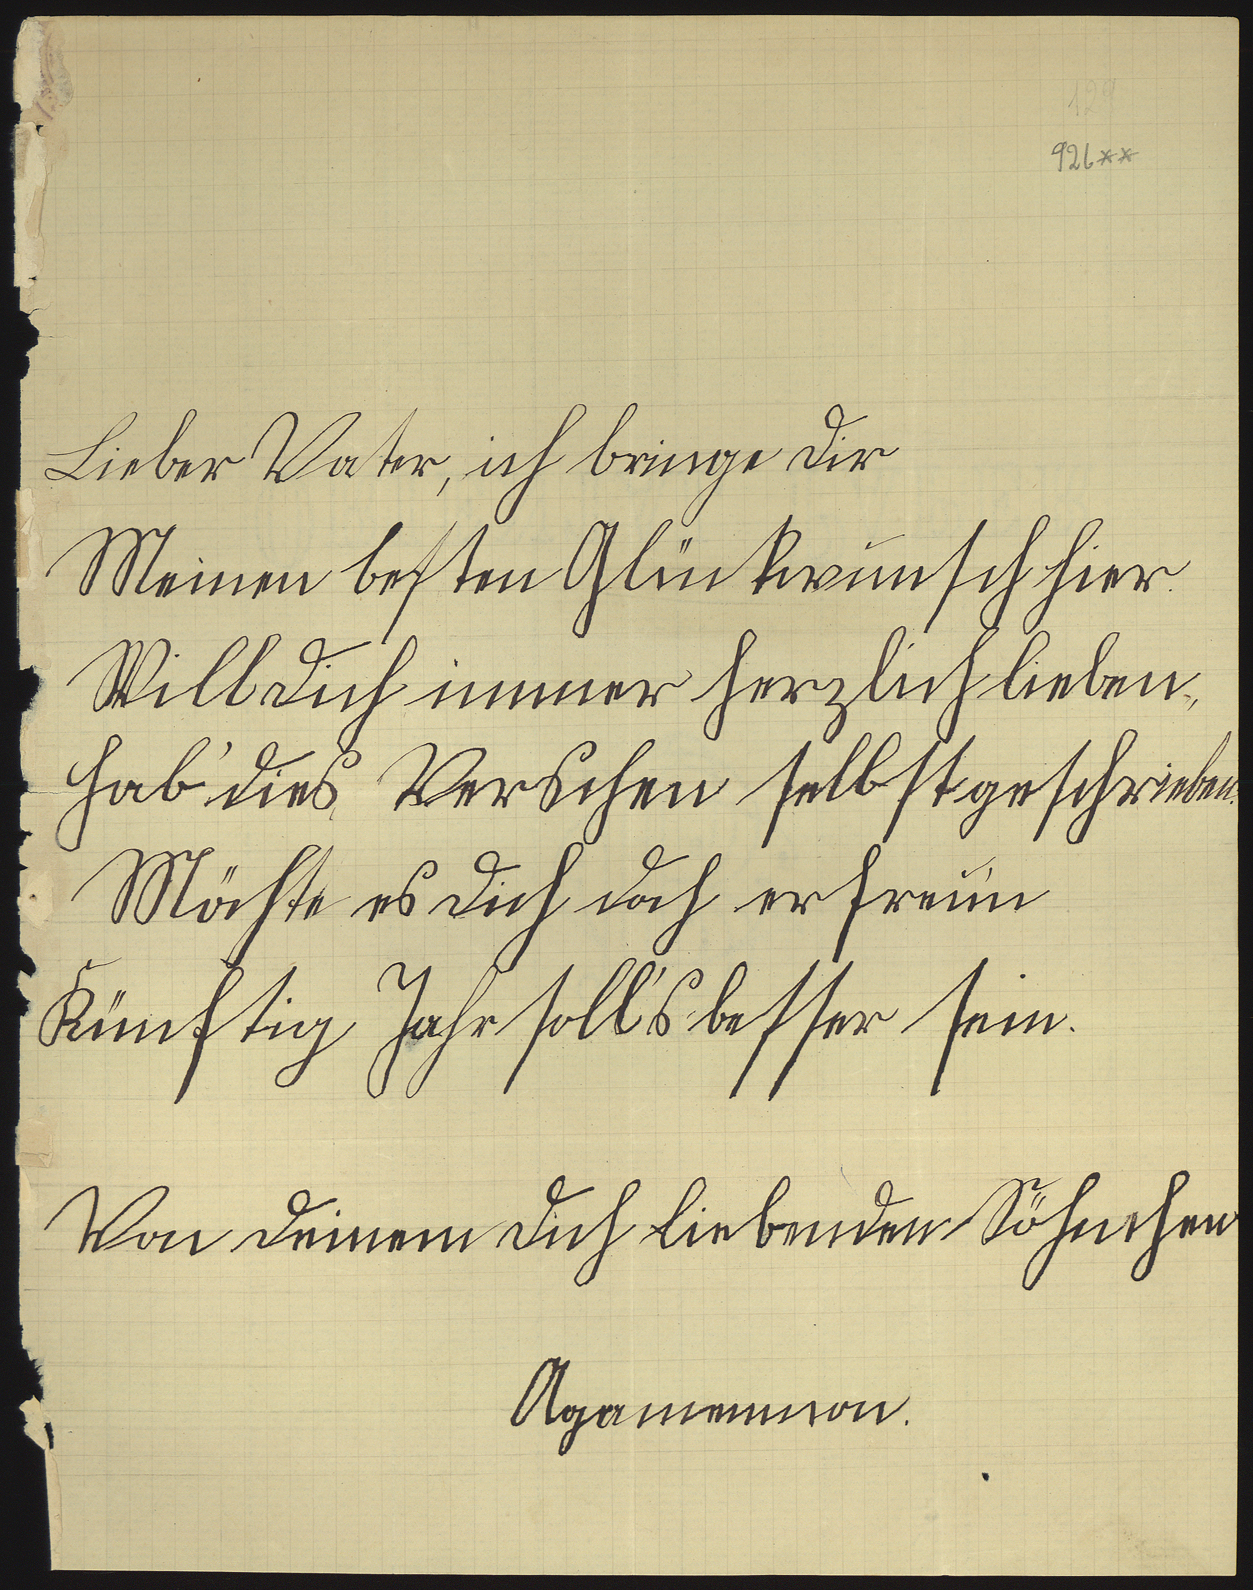 926**
Lieber Vater, ich bringe Dir
Meinen besten Glückwunsch hier.
Will Dich immer herzlich lieben,
hab' dies Verschen selbst geschrieben.
Möchte es Dich doch erfreun
Künftig Jahr soll's besser sein.
Von Deinem Dich liebenden Söhnchen
Agamemnon.